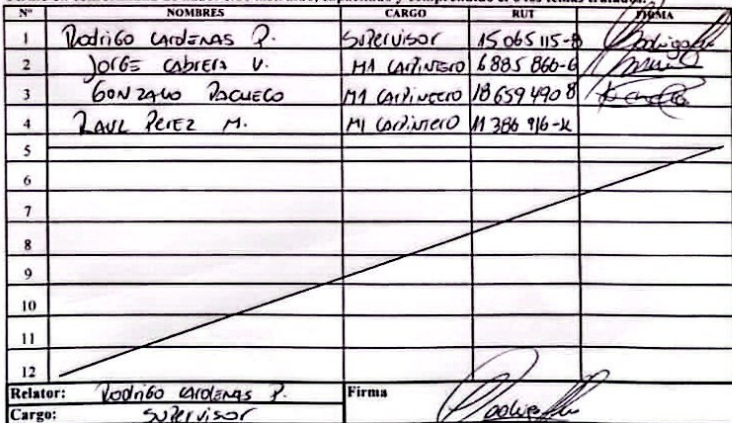 Nº NOMBRES CARGO RUT FIRMA
1 Rodrigo Cardenas P. Supervisor 15065115-8
2 Jorge Cabrera V. M1 Carpintero 6885866-6
3 Gonzalo Pacheco M1 Carpintero 18659490 8
4 Raul Perez M. M1 Carpintero 11386916-K
5
6
7
8
9
10
11
12
Relator: Rodrigo Cardenas P. Firma
Cargo: Supervisor